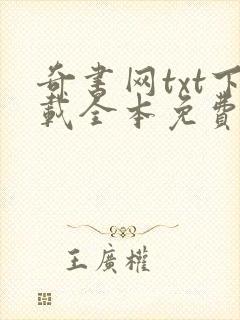 奇书网txt下
載全本免費
王廣權